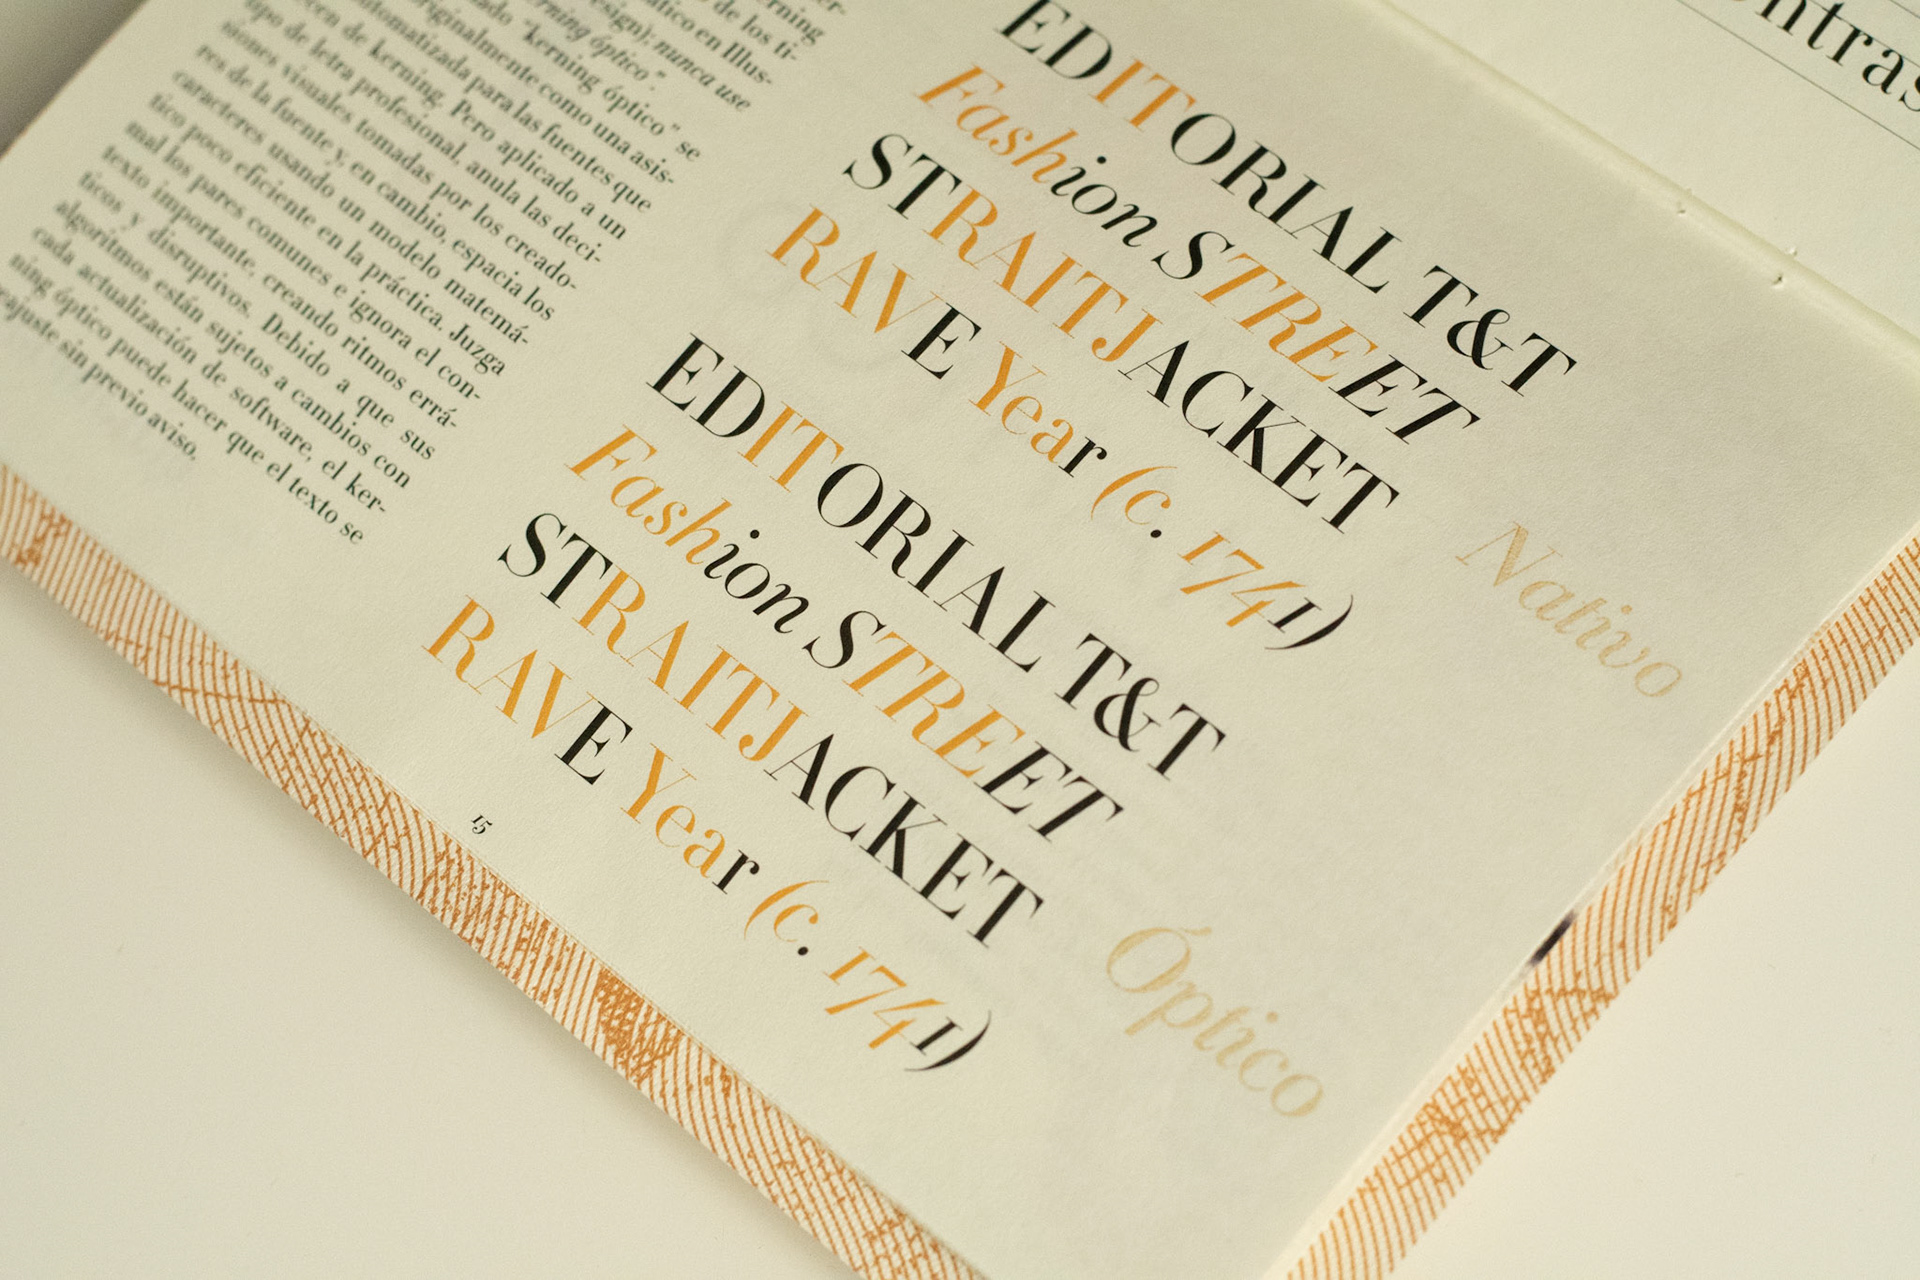 kerning
de los ti-
ático en Illus-
esign); nunca use
erning óptico".
"kerning óptico" se
originalmente como una asis-
automatizada para las fuentes que
cen de kerning. Pero aplicado a un
tipo de letra profesional, anula las deci-
siones visuales tomadas por los creado-
res de la fuente y, en cambio, espacia los
caracteres usando un modelo matemá-
tico poco eficiente en la práctica. Juzga
mal los pares comunes e ignora el con-
texto importante, creando ritmos errá-
ticos y disruptivos. Debido a que sus
algoritmos están sujetos a cambios con
cada actualización de software, el ker-
ning óptico puede hacer que el texto se
reajuste sin previo aviso.
EDITORIAL T&T
Fashion STREET
STRAITJACKET
RAVE Year (c. 1741)
Nativo
EDITORIAL T&T
Fashion STREET
STRAITJACKET
RAVE Year (c. 1741)
Óptico
15
ontras